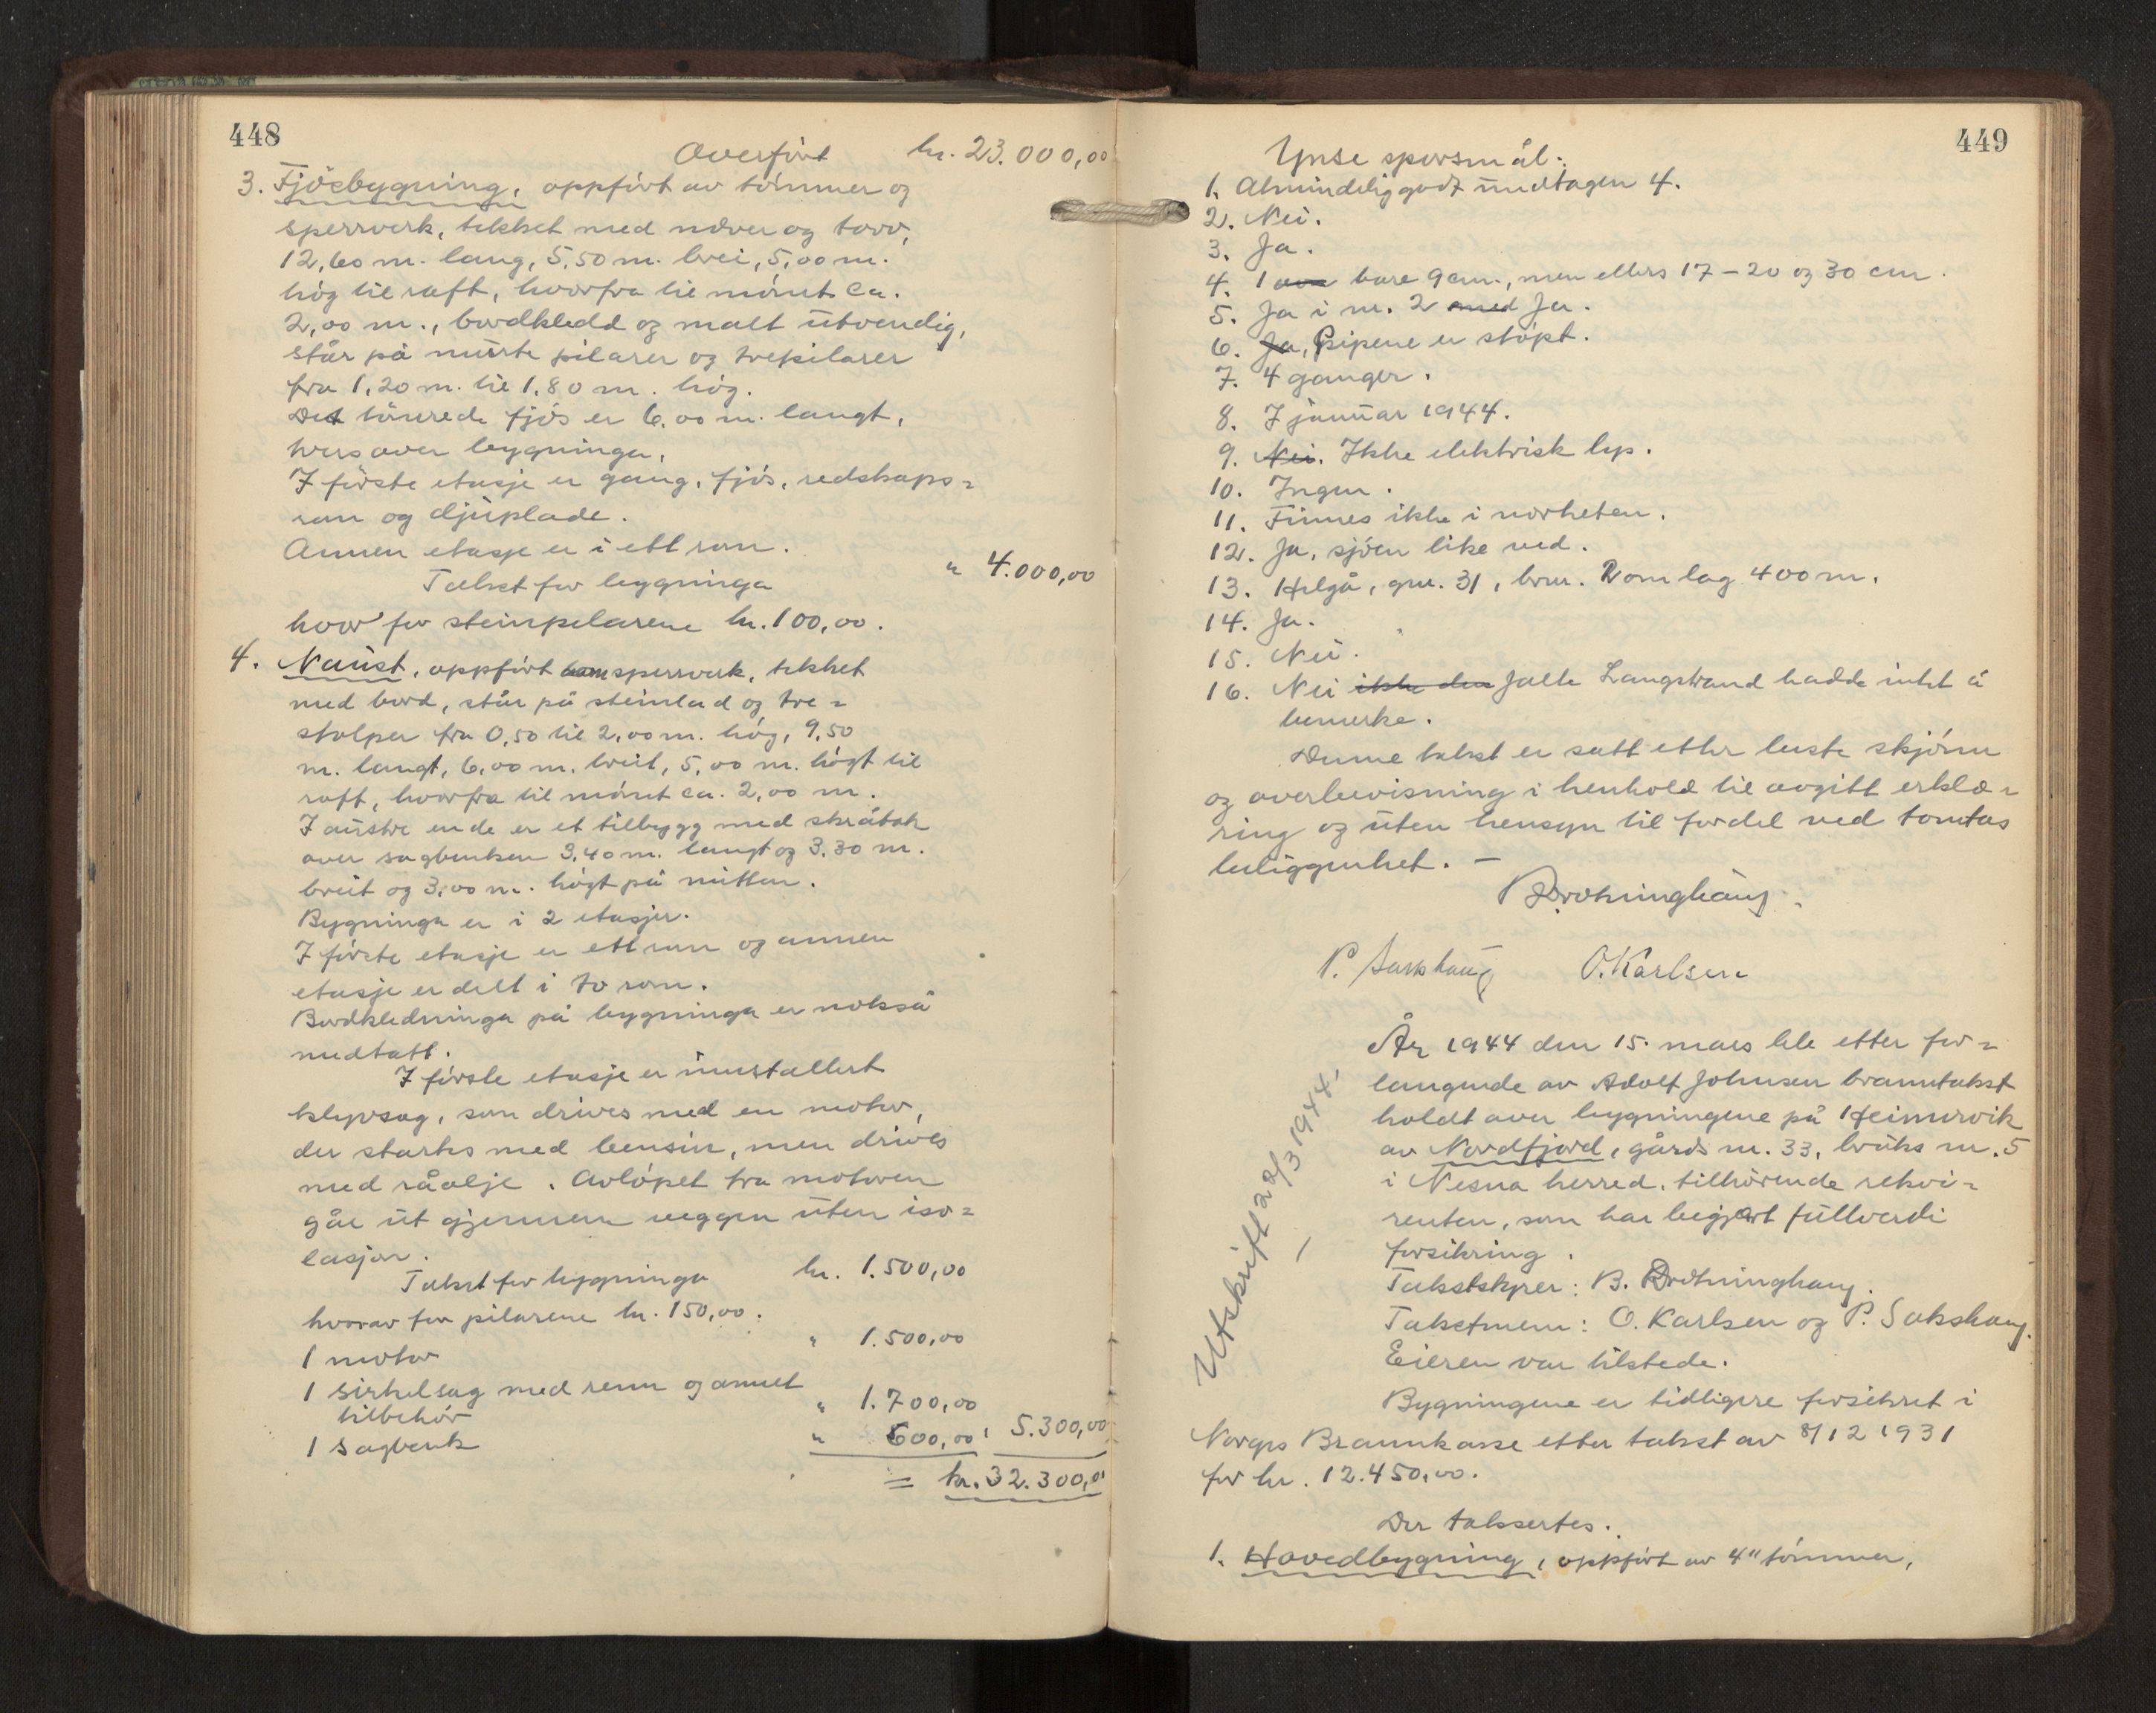 448
Overført kr. 23.000,00
3. Fjösbygning, oppfört av tömmer og
sperrverk, tekket med never og torv,
12,60 m. lang, 5,50 m. brei, 5,00 m.
hög til raft, hvorfra til mönet ca.
2,00 m., bordkledd og malt utvendig,
står på murte pilarer og trepilarer
fra 1,20 m. til 1,80 m. hög.
Det tömrede fjös er 6,00 m. langt,
tvers over bygninga.
I förste etasje er gang, fjös, redskaps=
rom og djuplade.
Annen etasje er i ett rom.
Takst for bygninga " 4.000,00
hvor for steinpilarene kr. 100,00.
4. Naust, oppfört sperrverk, tekket
med bord, står på steinlad og tre=
stolper fra 0,50 til 2,00 m. hög, 9,50
m. langt, 6,00 m. breit, 5,00 m. högt til
raft, hvorfra til mönet ca. 2,00 m.
I austre ende er et tilbygg med skråtak
over sagbenken 3,40 m. langt og 3,30 m.
breit og 3,00 m. högt på mitten.
Bygninga er i 2 etasjer.
I förste etasje er ett rom og annen
etasje er delt i to rom.
Bordkledninga på bygninga er nokså
medtatt.
I förste etasje er innstallert
klyvsag, som drives med en motor,
der startes med bensin, men drives
med råolje. Avlöpet fra motoren
går ut gjennem veggen uten iso=
lasjon.
Takst for bygninga kr. 1.500,00
hvorav for pilarene kr. 150,00.
1 motor " 1.500,00
1 sirkelsag med reim og annet
tilbehör " 1.700,00
1 sagbenk " 600,00 5.300,00
= kr. 32.300,00
449
Ymse spörsmål:
1. Almindelig godt undtagen 4.
2. Nei.
3. Ja.
4. 1 bare 9 cm., men ellers 17 – 20 og 30 cm.
5. Ja i nr. 2 med Ja.
6. Ja, Pipene er stöpt.
7. 4 ganger.
8. 7 januar 1944.
9. Nei. Ikke elektrisk lys.
10. Ingen.
11. Finnes ikke i nærheten.
12. Ja, sjöen like ved.
13. Helgå, gnr. 31, bnr. 2 om lag 400 m.
14. Ja.
15. Nei.
16. Nei ikke den Jalle Langstrand hadde intet å
bemerke.
Denne takst er satt etter beste skjönn
og overbevisning i henhold til avgitt erklæ=
ring og uten hensyn til fordel ved tomtas
beliggenhet. –
B Drotninghaug.
P. Sakshaug O. Karlsen
Utskrift 22/3 1944.
År 1944 den 15. mars ble etter for=
langende av Adolf Johnsen branntakst
holdt over bygningene på Heimervik
av Nordfjord, gårds nr. 33, bruks nr. 5
i Nesna herred, tilhörende rekvi=
renten, som har begjært fullverdi
forsikring.
Takstskyver: B. Drotninghaug.
Takstmenn: O. Karlsen og P. Sakshaug.
Eieren var tilstede.
Bygningene er tidligere forsikret i
Norges Brannkasse etter takst av 8/12 1931
for kr. 12.450,00.
Der taksertes.
1. Hovedbygning, oppfört av 4" tömmer,